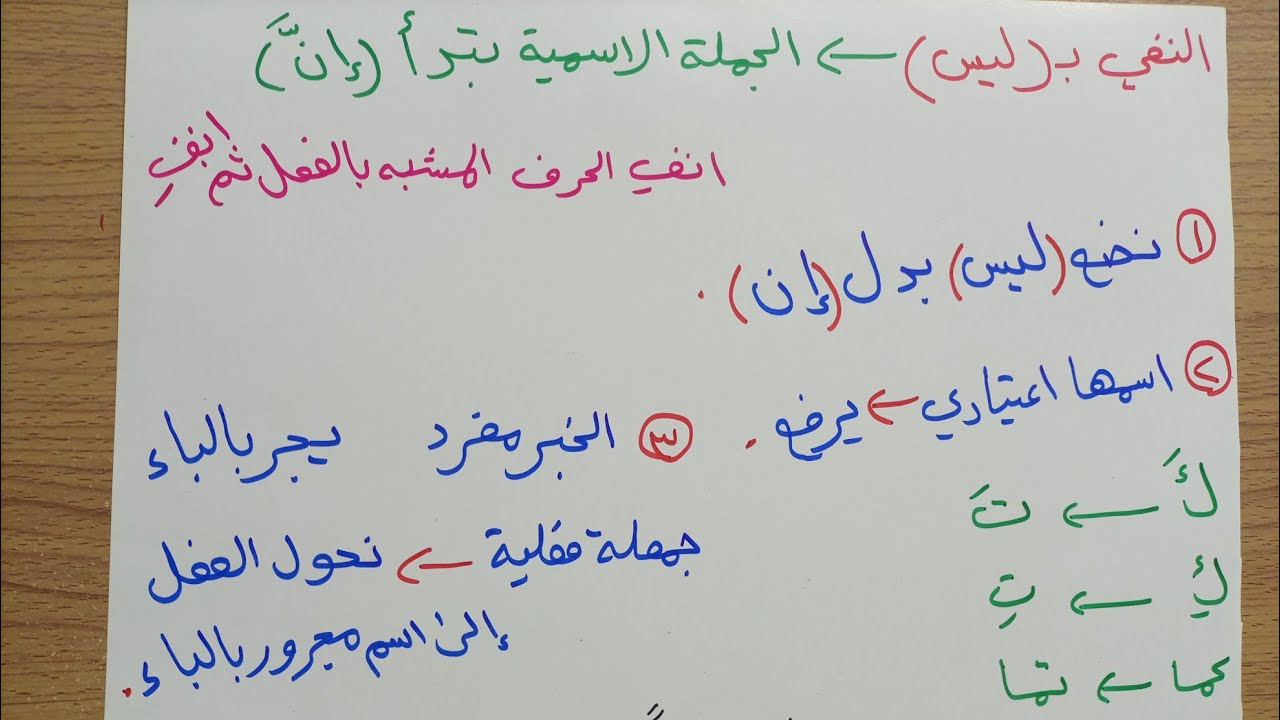 النفي بـ (ليس) ← الجملة الاسمية تبدأ (إنَّ)
انفي الحرف المشبه بالفعل ثم انفِ
١ نضع (ليس) بدل (إن).
٢ اسمها اعتيادي ← يرفع.
كَ ← تَ
كِ ← تِ
كما ← تما
٣ الخبر مفرد يجر بالباء
جملة فعلية ← نحول الفعل
إلى اسم مجرور بالباء.